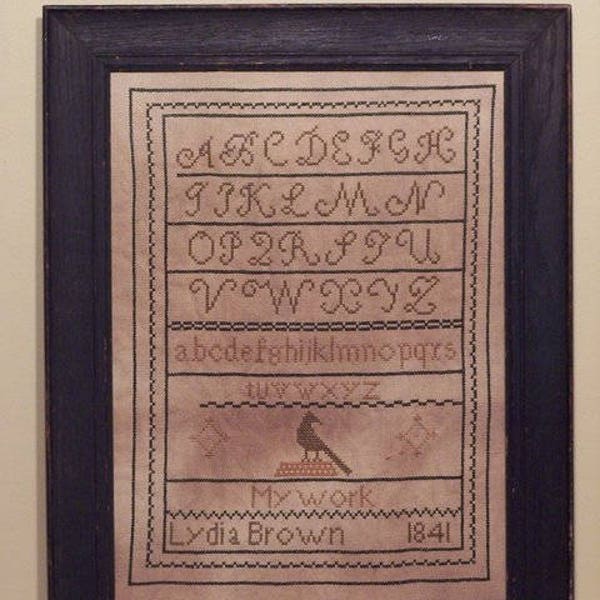 A B C D E F G H
I J K L M N
O P Q R S T U
V W X Y Z
abcdefghijklmnopqrs
tuvwxyz
My work
Lydia Brown 1841